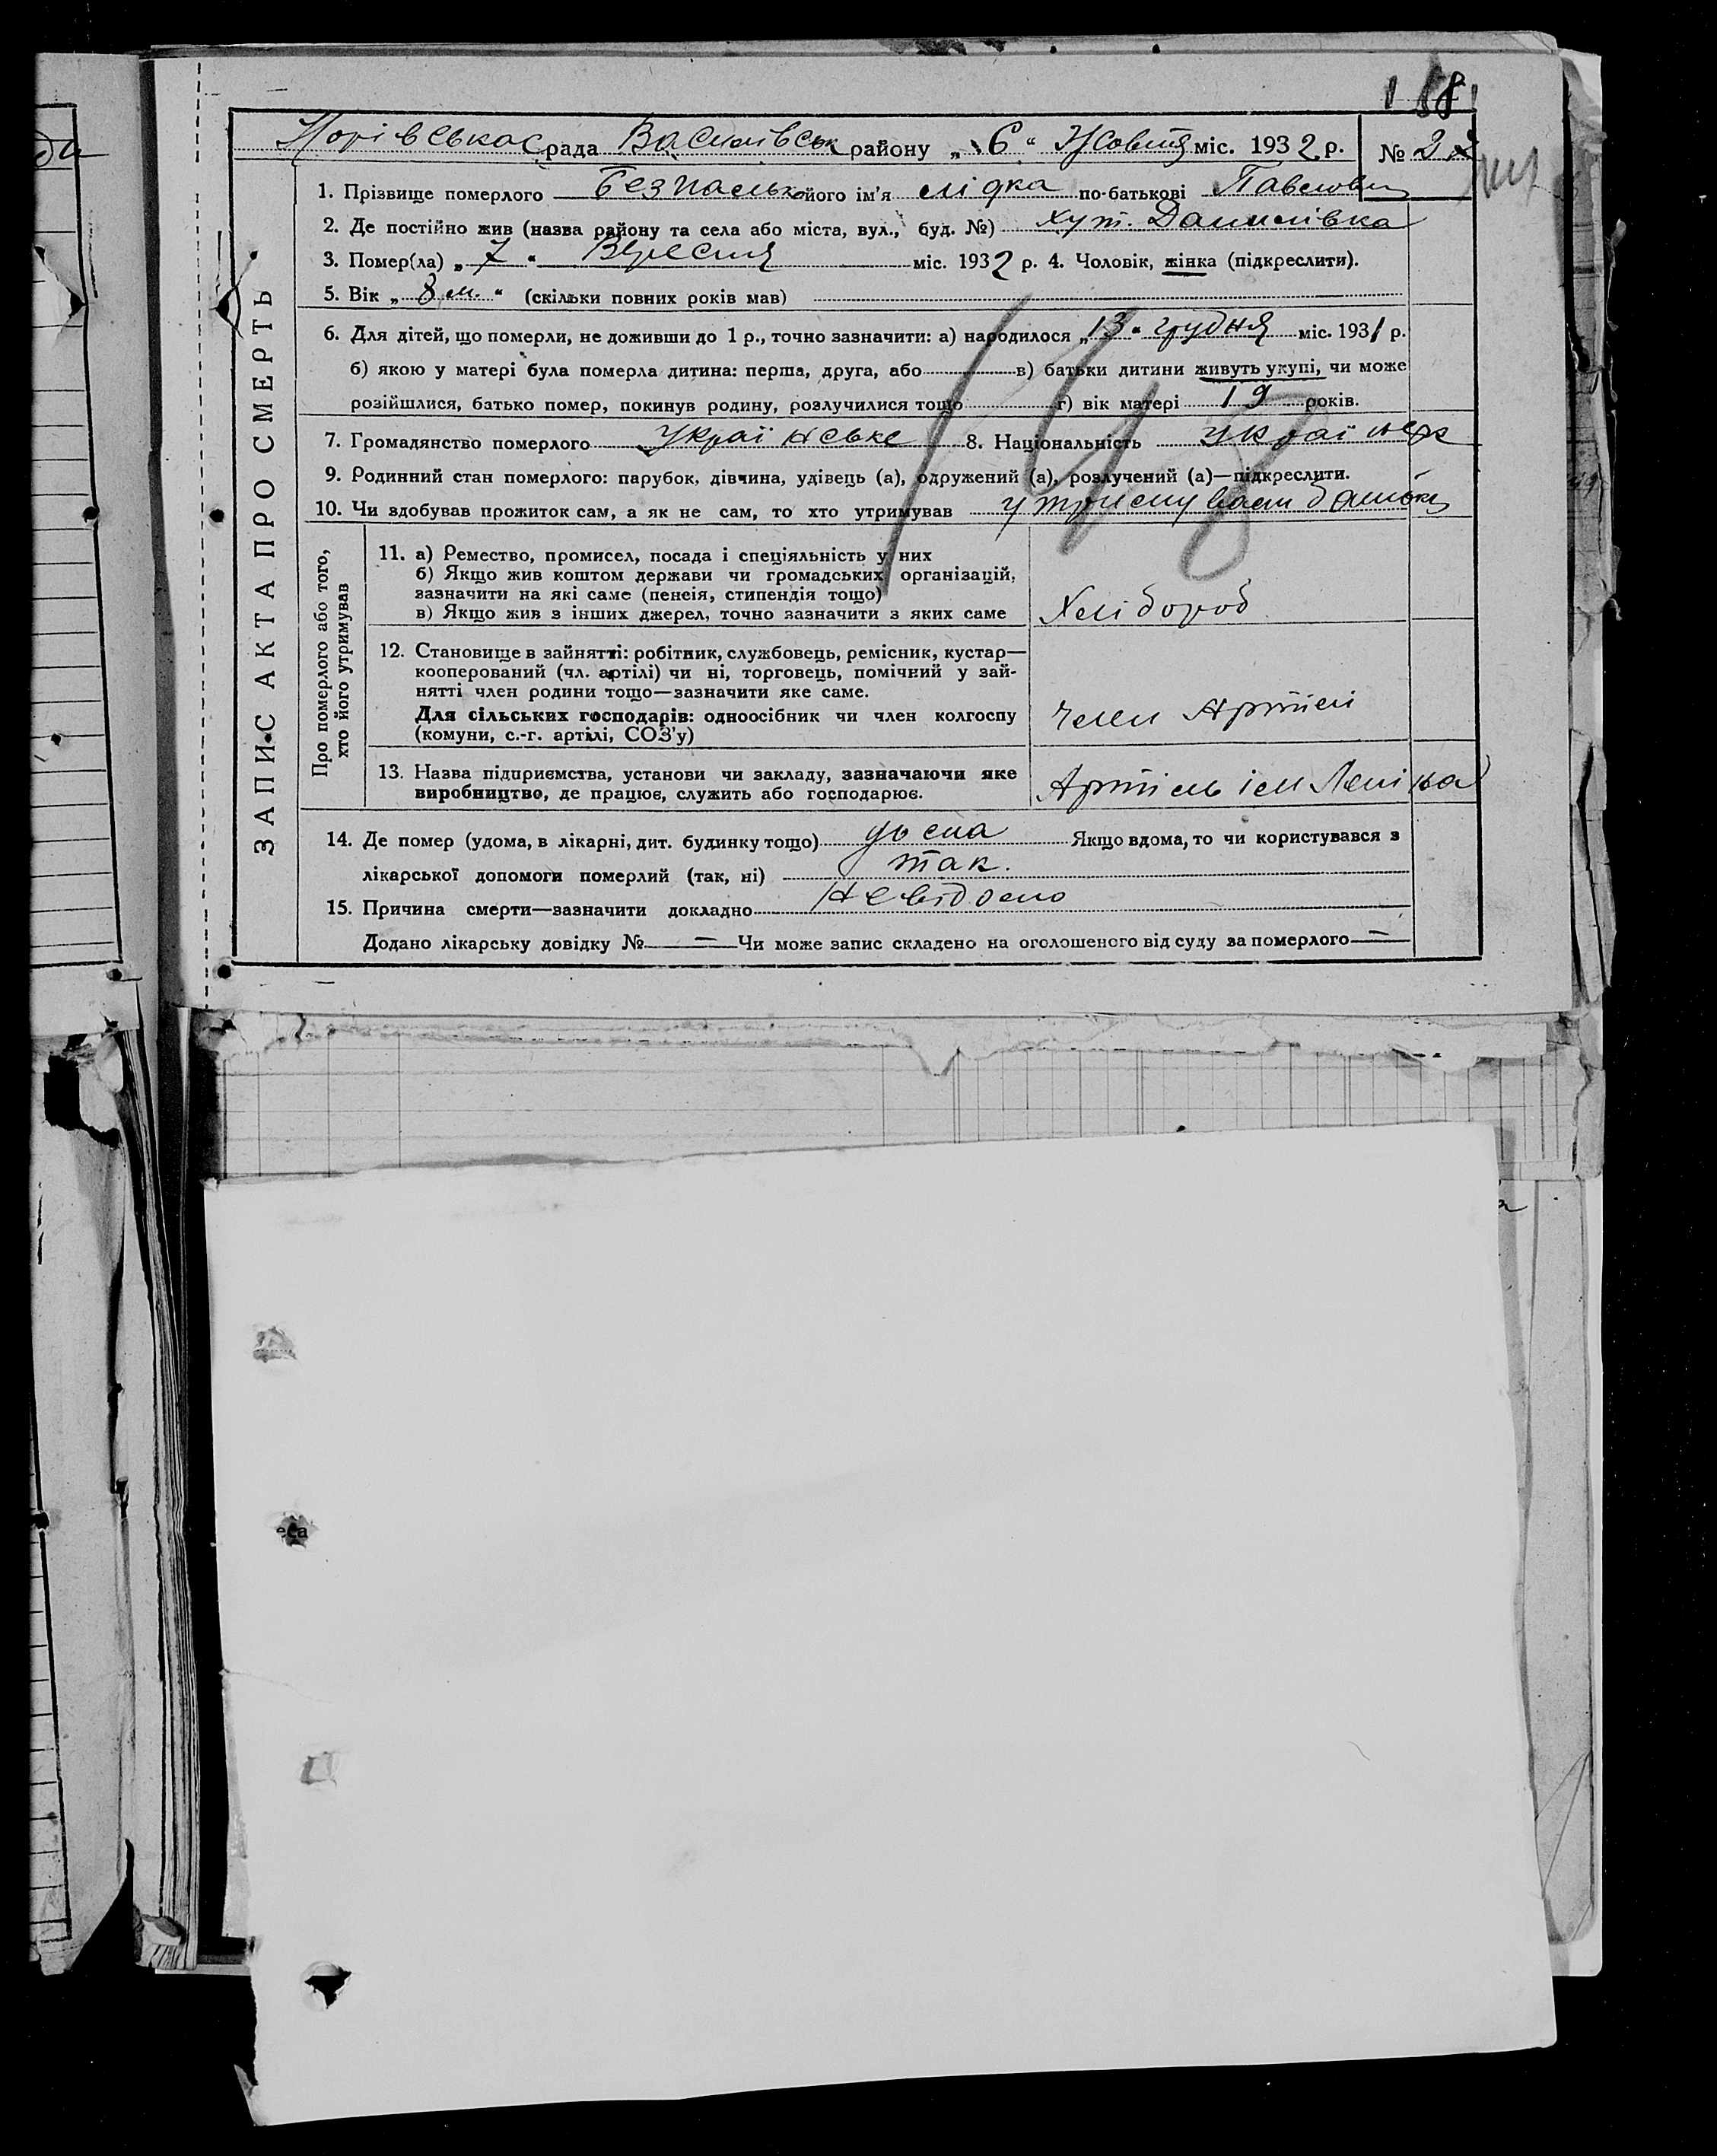 188
рада Василівськ району „6“ Жовтня міс. 1932 р. № 22
1. Прізвище померлого Безпалько його ім’я Лідка по-батькові Павловна
2. Де постійно жив (назва району та села або міста, вул., буд. №) хут. Данилівка
3. Помер(ла) „7“ Вересня міс. 1932 р. 4. Чоловік, жінка (підкреслити).
5. Вік „8 м.“ (скільки повних років мав)
6. Для дітей, що померли, не доживши до 1 р., точно зазначити: а) народилося „13“ грудня міс. 1931 р.
б) якою у матері була померла дитина: перша, друга, або в) батьки дитини живуть укупі, чи може
розійшлися, батько помер, покинув родину, розлучилися тощо г) вік матері 19 років.
7. Громадянство померлого Українське 8. Національність
9. Родинний стан померлого: парубок, дівчина, удівець (а), одружений (а), розлучений (а)—підкреслити.
10. Чи здобував прожиток сам, а як не сам, то хто утримував утримували батьки
ЗАПИС АКТА ПРО СМЕРТЬ
Про померлого або того,
хто його утримував
11. а) Ремество, промисел, посада і спеціяльність у них
б) Якщо жив коштом держави чи громадських організацій,
зазначити на які саме (пенсія, стипендія тощо)
в) Якщо жив з інших джерел, точно зазначити з яких саме
Хлібороб
12. Становище в зайнятті: робітник, службовець, ремісник, кустар—
кооперований (чл. артілі) чи ні, торговець, помічний у зай-
нятті член родини тощо—зазначити яке саме.
Для сільських господарів: одноосібник чи член колгоспу
(комуни, с.-г. артілі, СОЗ’у)
Член Артілі
13. Назва підприємства, установи чи закладу, зазначаючи яке
виробництво, де працює, служить або господарює.
Артіль ім Леніна
14. Де помер (удома, в лікарні, дит. будинку тощо) Якщо вдома, то чи користувався з
лікарської допомоги померлий (так, ні) так.
15. Причина смерти—зазначити докладно Невідомо
Додано лікарську довідку № — Чи може запис складено на оголошеного від суду за померлого —
148